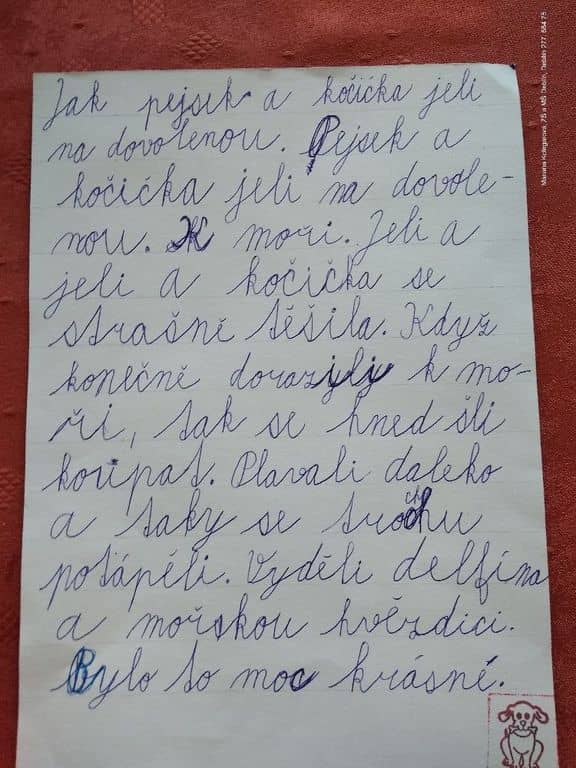 Jak pejsek a kočička jeli
na dovolenou. Pejsek a
kočička jeli na dovole-
nou. K moři. Jeli a
jeli a kočička se
strašně těšila. Když
konečně dorazyly k mo-
ři, tak se hned šli
koupat. Plavali daleko
a taky se trochu
potápěli. Vyděli delfína
a mořskou hvězdici.
Bylo to moc krásné.